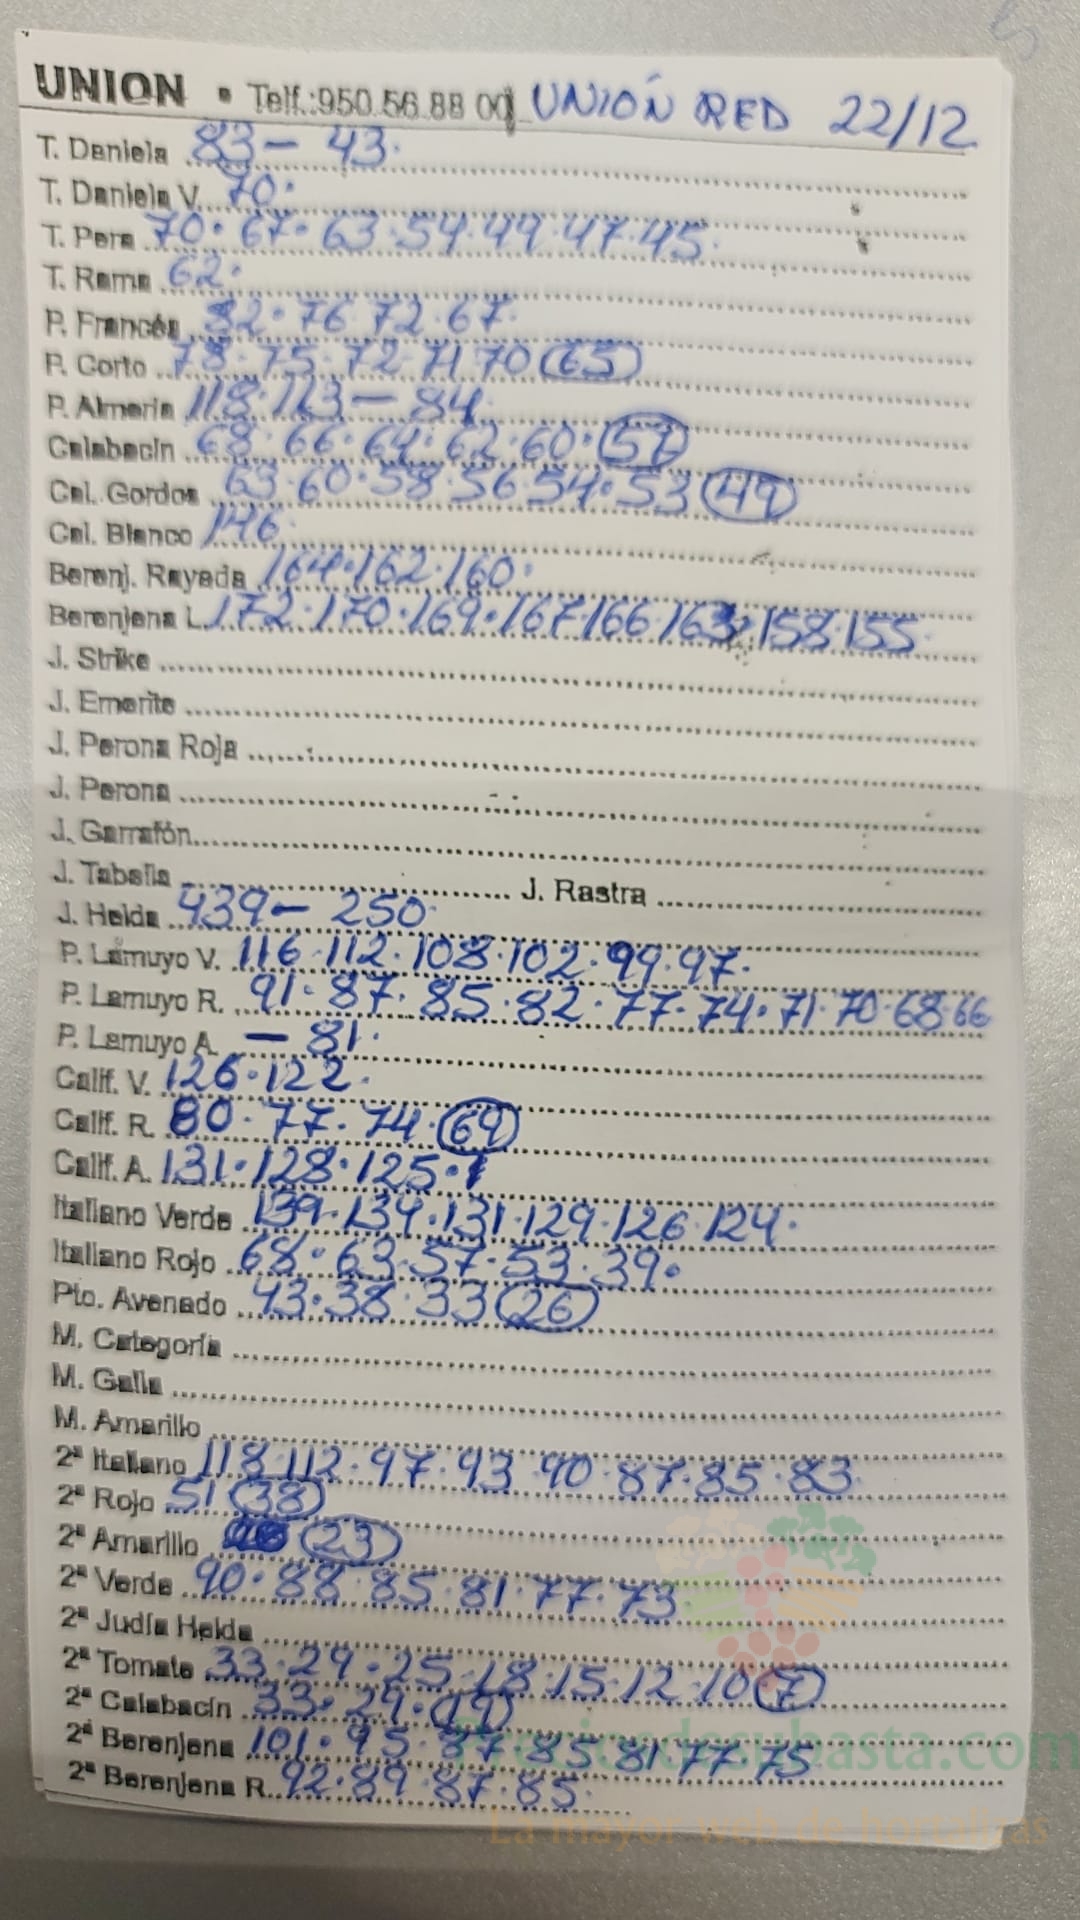 UNION • Telf.:950.56.88 00 UNIÓN RED 22/12
T. Daniela 83 — 43.
T. Daniela V. 70.
T. Pera 70. 67. 63. 54. 49. 47. 45.
T. Rama 62.
P. Francés 82. 76 72. 67.
P. Corto 78. 75. 72. 71 70 (65)
P. Almeria 118. 113 — 84.
Calabacín 68. 66. 64. 62. 60. (57)
Cal. Gordos 63. 60. 58. 56. 54. 53 (49)
Cal. Blanco 146.
Berenj. Rayada 164. 162. 160.
Berenjena L. 172. 170. 169. 167. 166 163. 158. 155.
J. Strike
J. Emerite
J. Perona Roja
J. Perona
J. Garrafón
J. Tabella J. Rastra
J. Helda 439 — 250.
P. Lamuyo V. 116. 112. 108. 102. 99. 97.
P. Lamuyo R. 91. 87. 85. 82. 77. 74. 71. 70. 68. 66
P. Lamuyo A. — 81.
Calif. V. 126. 122.
Calif. R. 80. 77. 74. (69)
Calif. A. 131. 128. 125.
Italiano Verde 139. 134. 131. 129. 126. 124.
Italiano Rojo 68. 63. 57. 53. 39.
Pto. Avenado 43. 38. 33 (26)
M. Categoría
M. Galia
M. Amarillo
2ª Italiano 118 112. 97. 93 90. 87. 85. 83.
2ª Rojo 51 (38)
2ª Amarillo (23)
2ª Verde 90. 88. 85. 81. 77. 73
2ª Judía Helda
2ª Tomate 33. 29. 25. 18. 15. 12. 10 (7)
2ª Calabacín 33. 29. (19)
2ª Berenjena 101. 95. 87. 85 81 77 75
2ª Berenjena R. 92. 89. 87. 85.
Preciosdesubasta.com
La mayor web de hortalizas